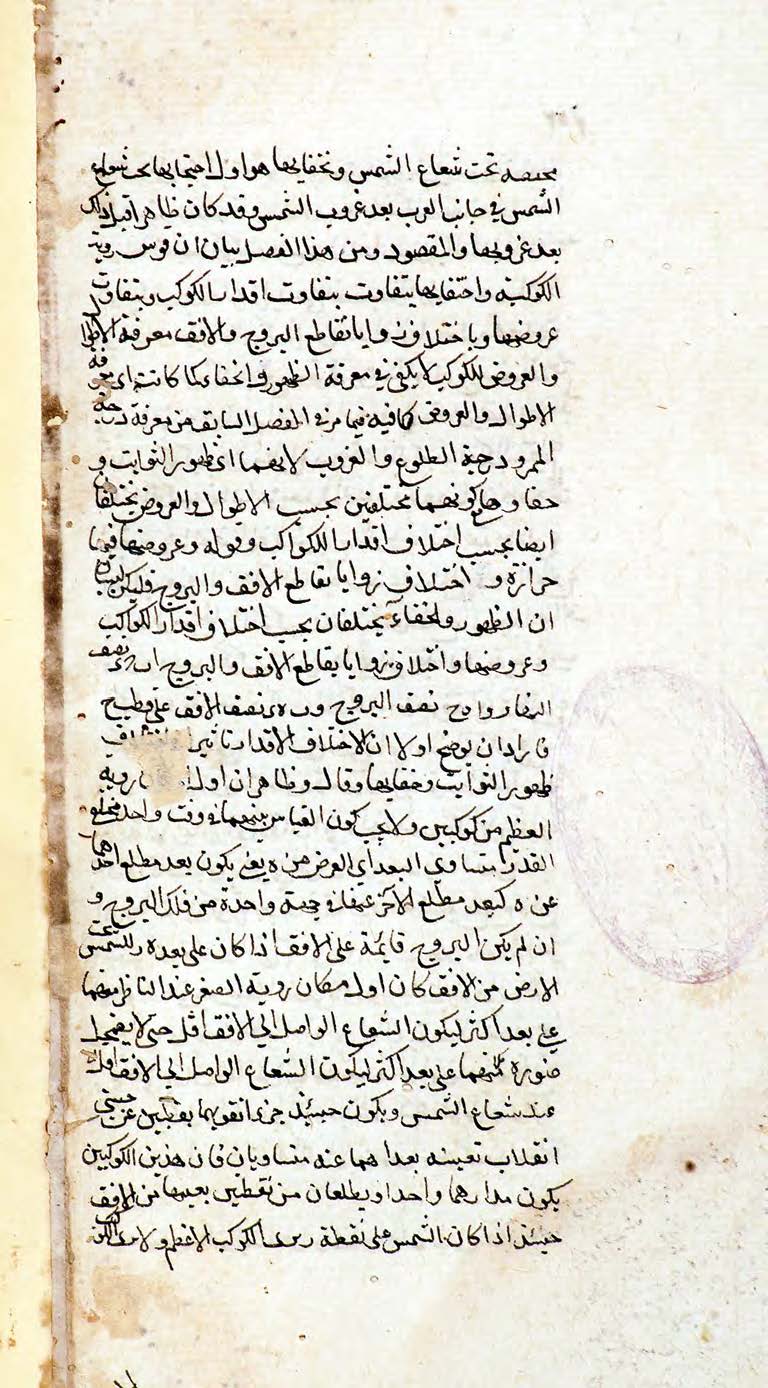 تحت شعاع الشمس وتخفايها هو اول احتجابها تحت شعاع
الشمس في جانب الغرب بعد غروب الشمس وقد كان ظاهرا قبل ذلك
بعد غروبها والمقصود ومن هذا الفصل بيان ان قوس روية
الكوكبة واختفايها يتفاوت بتفاوت اقدار الكوكب وبتفاوت
عروضها وباختلاف زوايا تقاطع البروج والافق معرفة الاطوال
والعروض للكوكب لا يكفي في معرفة الظهور والخفاء كما كانت اي معرفة
الاطوال والعروض كافية فيما مر في الفصل السابق من معرفة درجة
الممر ودرجة الطلوع والغروب لانهما اى ظهور الثوابت و
خفاوها كونهما مختلفين بحسب الاطوال والعروض يختلفان
ايضا بحسب اختلاف اقدار الكواكب وقوله وعروضها فيها
حزازة و اختلاف زوايا تقاطع الافق والبروج فليكن لبيان
ان الظهور ولخفاء يختلفان بحسب اختلاف اقدار الكواكب
وعروضها واختلاف زوايا تقاطع الافق والبروج نصف
النهار و نصف البروج و نصف الافق على قطبي ح
فاراد ان يوضح اولا ان لاختلاف الاقدار تاثيرا
ظهور الثوابت وخفايها وقال وظاهر ان اول روية
العظم من كوكبين ولا يجب كون القياس بينهما في وقت واحد مختلفي
القدر متساوى البعد اي العرض من ه يعني يكون بعد مطلع احدهما
عن ه كبعد مطلع الآخر عنها في جهة واحدة من فلك البروج و
ان لم يكن البروج قائمة على الافق اذا كان على بعد ه ر للشمس تحت
الارض من الافق كان اول مكان روية الصغر عند الناظر منهما
على بعد اكثر ليكون الشعاع الواصل الى الافق اقل حتى لا يضمحل
ضوره منهما على بعد اكثر ليكون الشعاع الواصل الى الافق اقل
عند شعاع الشمس ويكون حينئذ جزءا تقويهما بنقطتين عن جنبتي
انقلاب بعينه بعدا هما عنه متساويان فان هذين الكوكبين
يكون مدارهما واحدا ويطلعان من نقطتين بعينها من الافق
حينئذ اذا كان الشمس على نقطة ر يرى الكوكب الاعظم ولا يرى